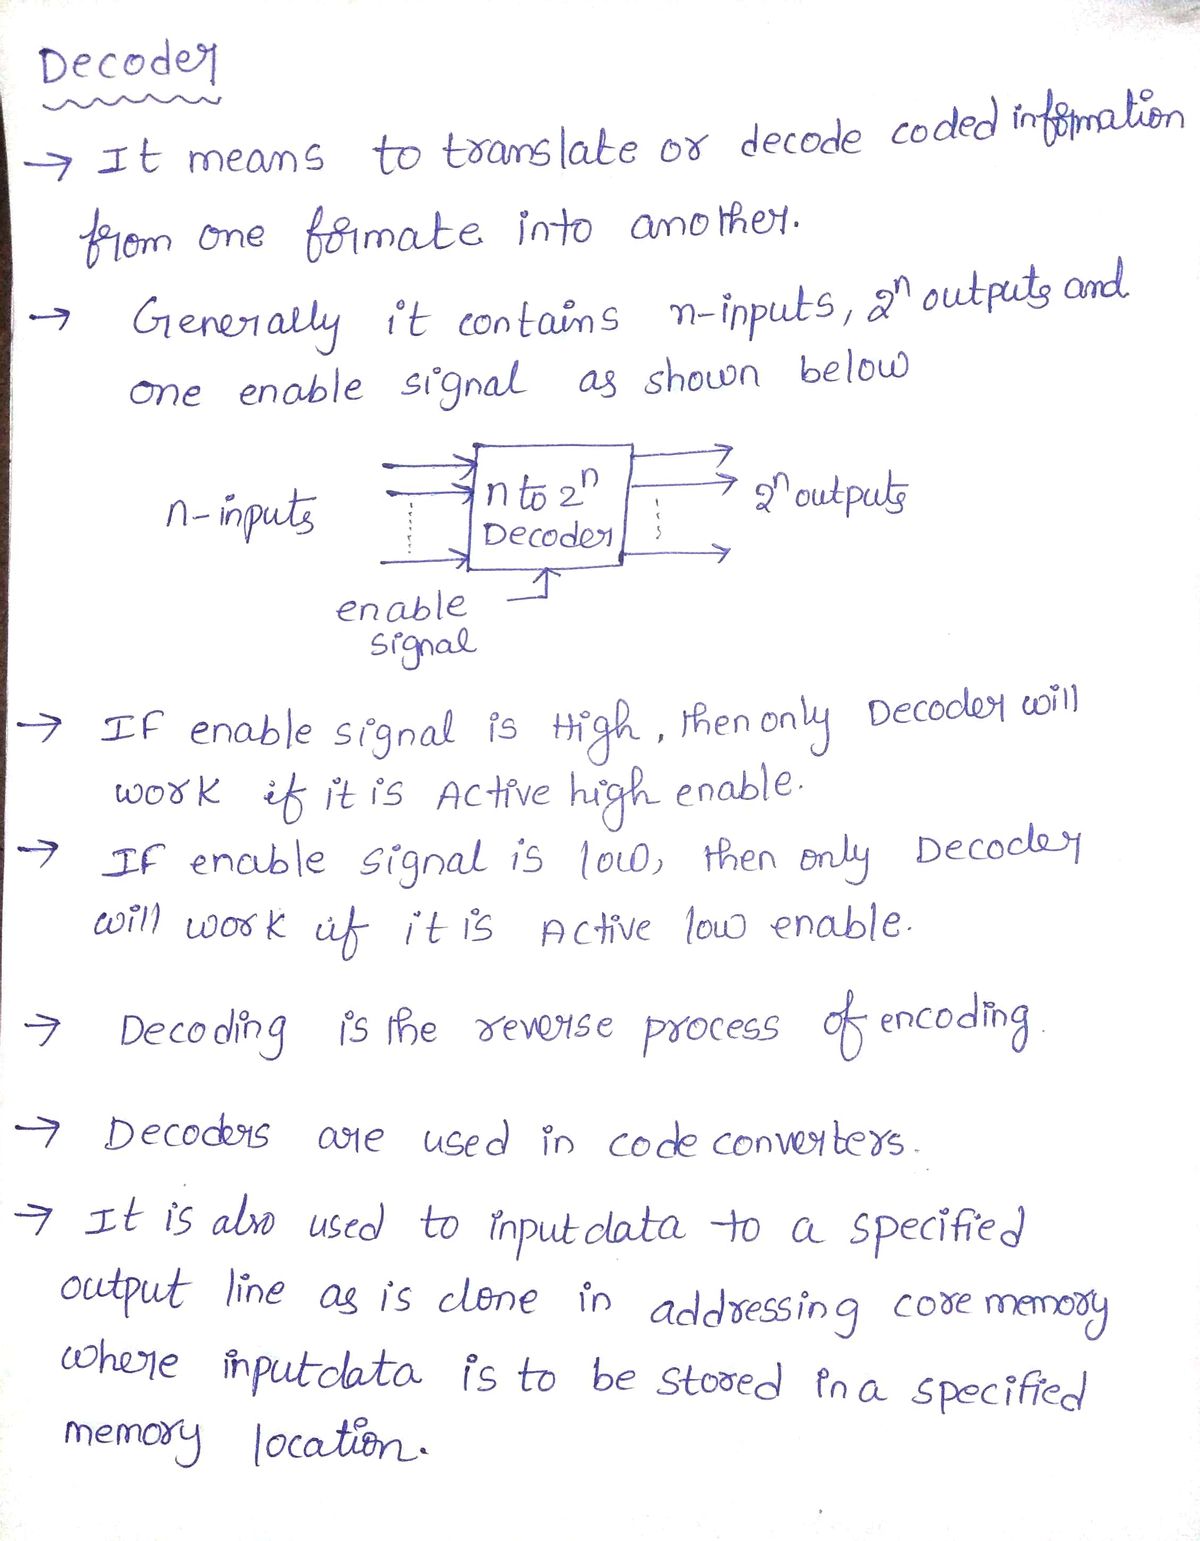 Decoder
→ It means to translate or decode coded information
from one formate into another.
→ Generally it contains n-inputs, 2ⁿ outputs and
one enable signal as shown below
n-inputs
n to 2ⁿ
Decoder
2ⁿ outputs
enable
signal
→ If enable signal is High, then only Decoder will
work if it is Active high enable.
→ If enable signal is low, then only Decoder
will work if it is Active low enable.
→ Decoding is the reverse process of encoding.
→ Decoders are used in code converters.
→ It is also used to input data to a specified
output line as is done in addressing core memory
where input data is to be stored in a specified
memory location.